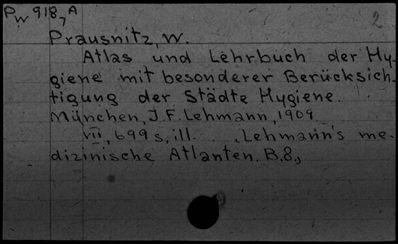 Pw 918, A
7
2
Prausnitz, W.
Atlas und Lehrbuch der Hy-
giene mit besonderer Berücksich-
tigung der Städte Hygiene.
München, J. F. Lehmann, 1909
VII, 699 s, ill. Lehmann's me-
dizinische Atlanten. B. 8,